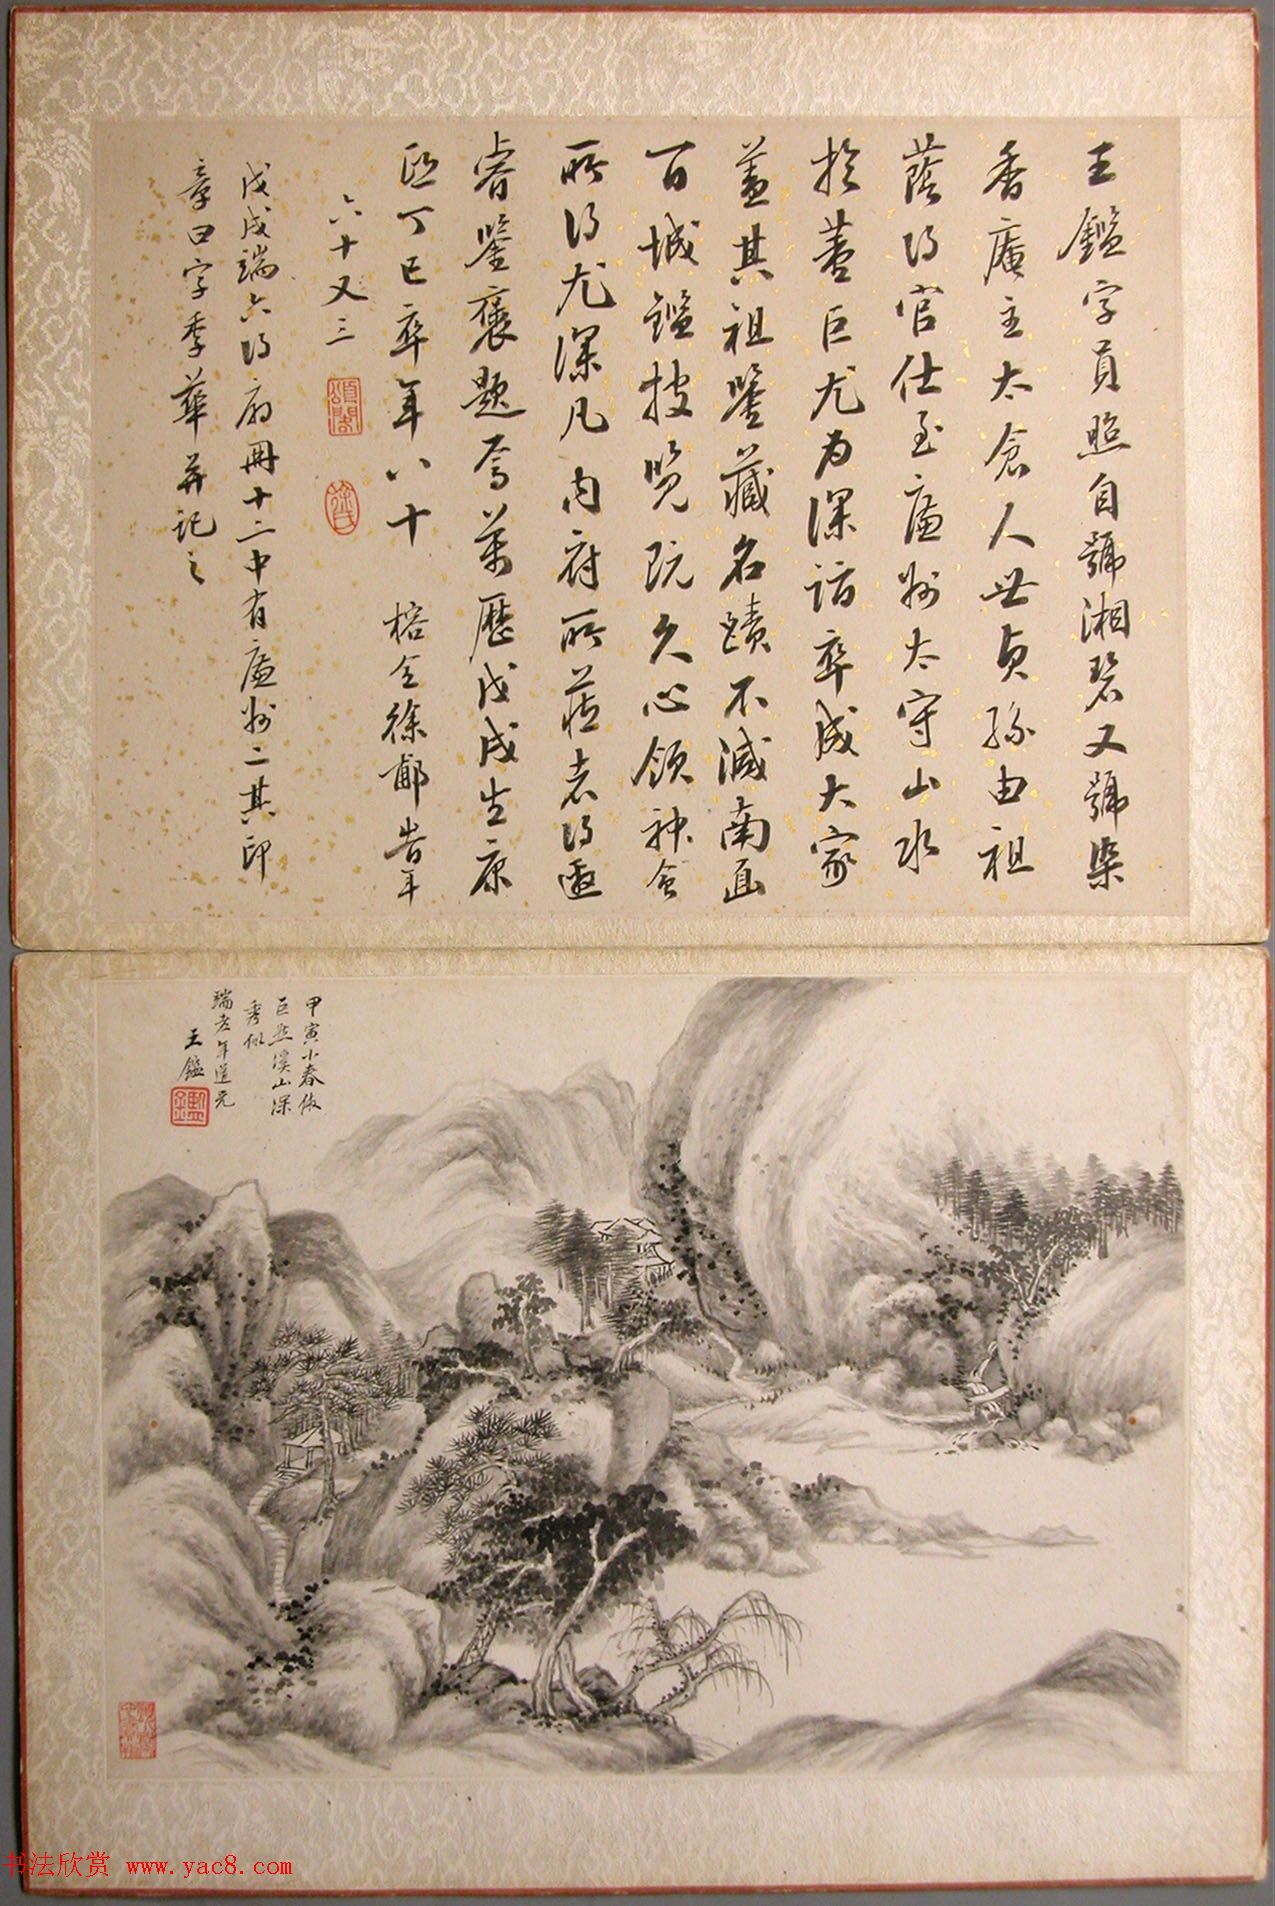 王鑑字員照自號湘碧又號染
香庵主太倉人世貞孫由祖
蔭得官仕至廉州太守山水
於董巨尤為深詣卒成大家
蓋其祖鑒藏名蹟不減南面
百城鑑披覽既久心領神會
所得尤深凡內府所藏者得邀
睿鑒褒題焉萬歷戊戌生康
熙丁巳卒年八十 榕全徐郙
六十又三
頌閣
徐氏
戊戌端六得扇冊十二中有廉州二其印
章曰字季華并記之
甲寅小春倣
巨然溪山深
秀似
端老年道兄
王鑑
书法欣赏 www.yac8.com